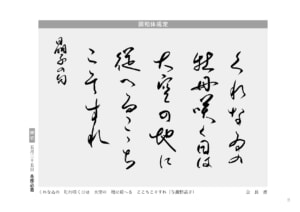 くれなゐの
牡丹咲く日は
大空の地に
従へるここち
こそすれ
晶子の句
くれなゐの 牡丹咲く日は 大空の 地に従へる ここちこそすれ（与謝野晶子）